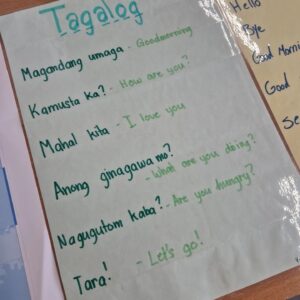 Tagalog
Magandang umaga - Goodmorning
Kamusta ka? - How are you?
Mahal kita - I love you
Anong ginagawa mo?
- What are you doing?
Nagugutom kaba? - Are you hungry?
Tara! - Let's go!
Hello
Bye
Good Morni
Good
Se